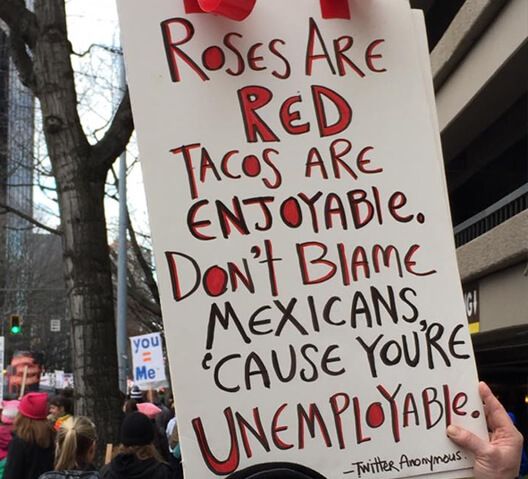 Roses Are
Red
Tacos are
enjoyable.
Don't Blame
Mexicans,
'cause you're
Unemployable.
-Twitter Anonymous.
you
=
Me